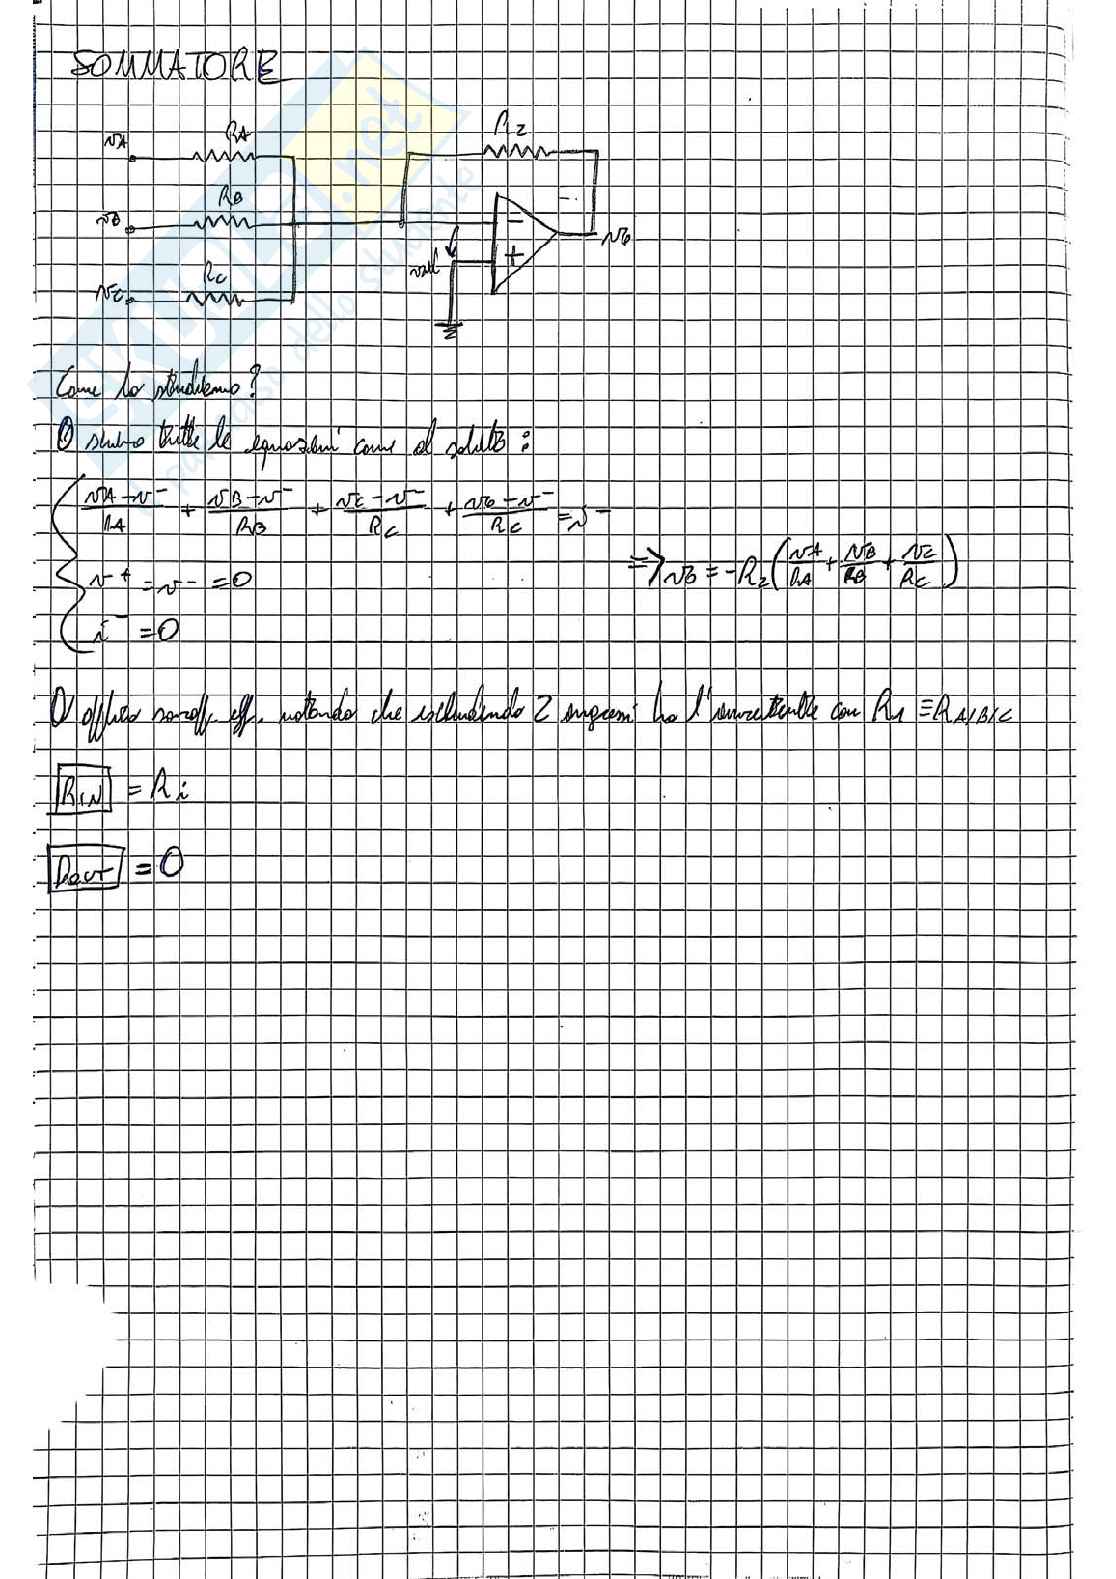 SOMMATORE
vA RA
R2
vB RB
−
vo
+
vd
vC RC
Come lo studiamo?
O scrivo tutte le equazioni come al solito:
(vA − v⁻)/RA + (vB − v⁻)/RB + (vC − v⁻)/RC + (vo − v⁻)/RC = i⁻
v⁺ = v⁻ = 0
i⁻ = 0
=> vo = −R2 (vA/RA + vB/RB + vC/RC)
O applico sovrapp. eff. notando che escludendo 2 ingressi ho l'invertente con R1 ≡ RA/B/C
RIN = Ri
Rout = 0
SKUOLA.net
paradiso dello studente